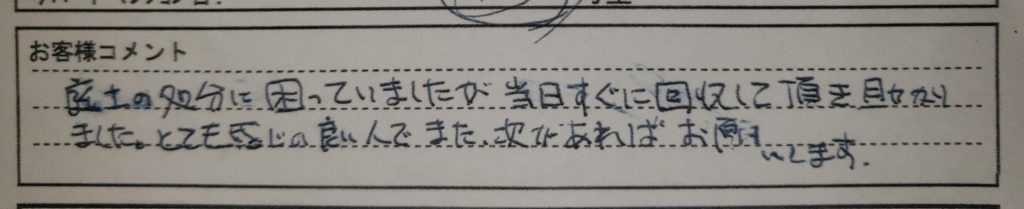 お客様コメント
の処分に困っていましたが当日すぐに回収して頂き助かり
ました。とても感じの良い人でまた、次があればお願いします.